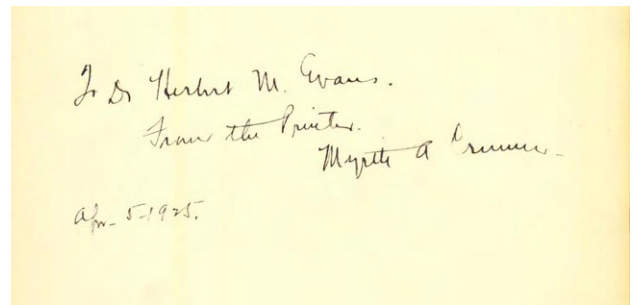 To Dr Herbert M. Evans.
From the Printer.
Myrtle A Crummer
Apr- 5-1925.